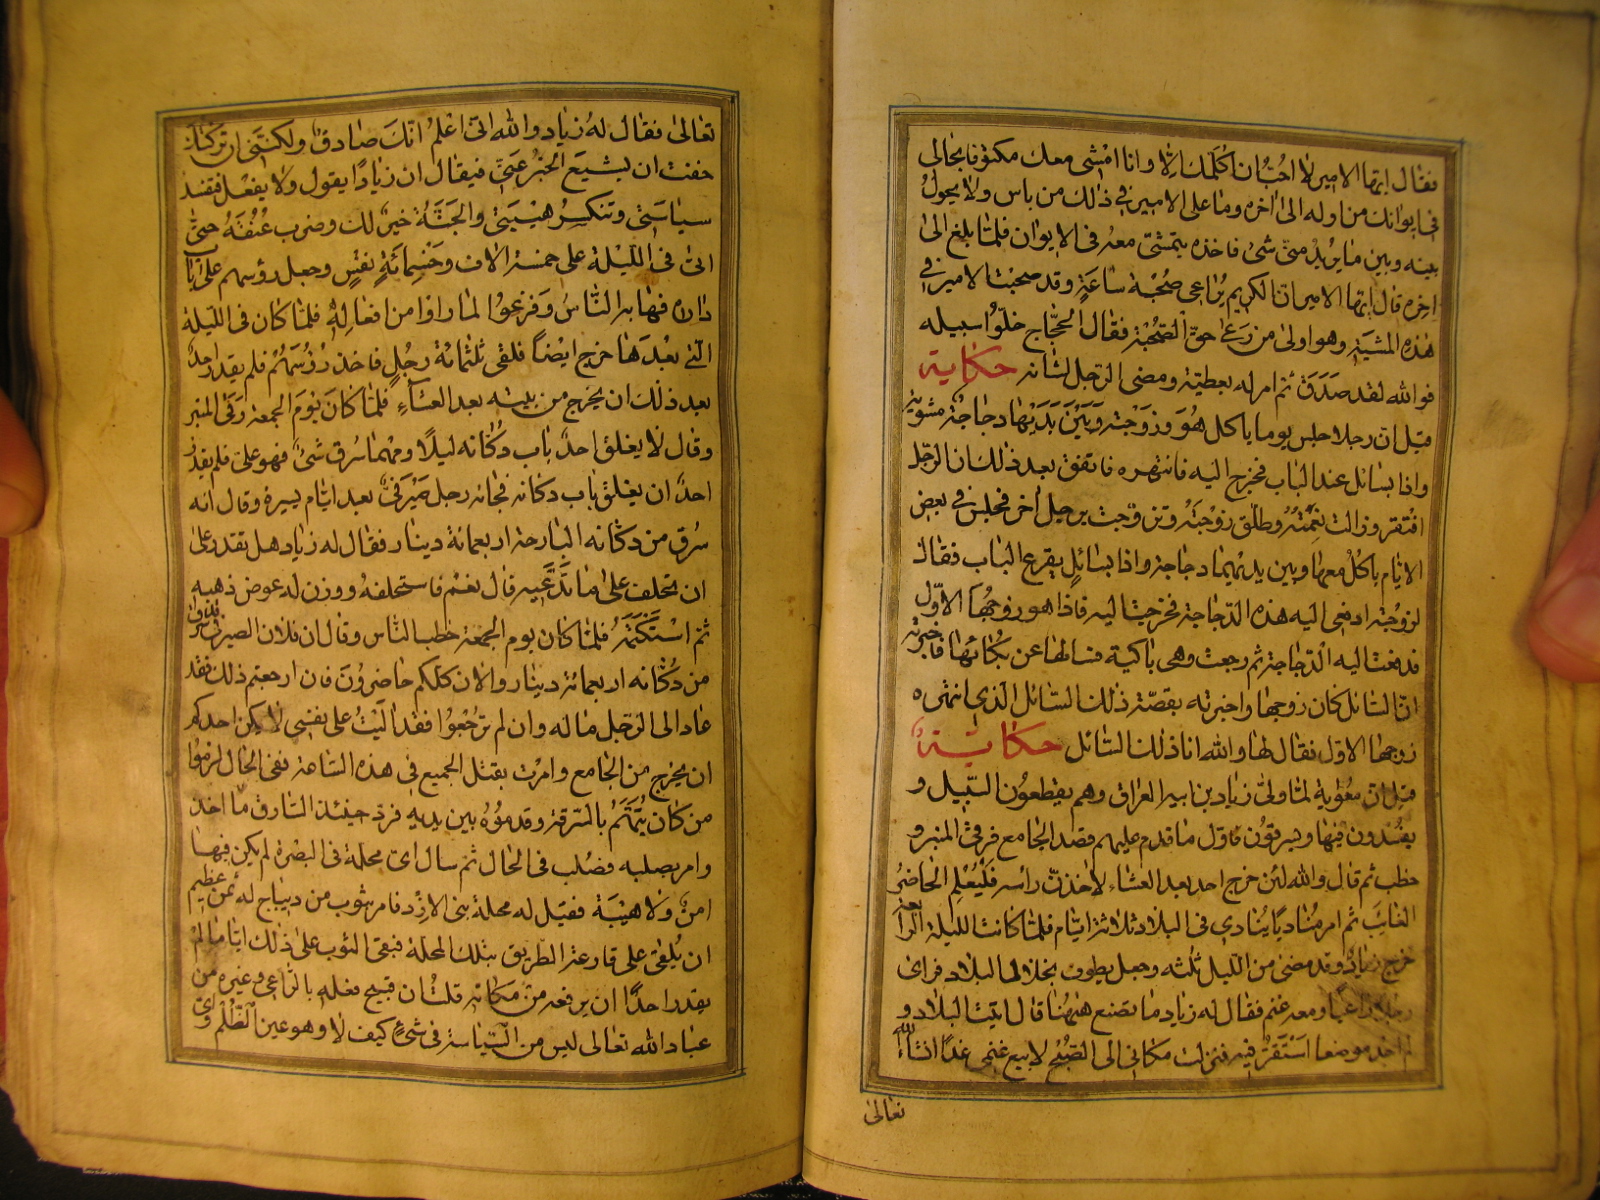 فقال ايها الامير لا احب ان اكلمك الا وانا امشى معك مكتوفا بحالى
فى ايوانك من اوله الى اخره وما على الامير فى ذلك من باس ولا يحول
بينه وبين ما يريد منى شئ فاخذه يتمشى معه فى الايوان فلما بلغ الى
اخره قال ايها الامير ان الكريم يراعى صحبة ساعة وقد صحبت الامير فى
هذه المشية وهو اولى من رعى حق الصحبة فقال الحجاج خلوا سبيله
فوالله لقد صدق ثم امر له بعطية ومضى الرجل لشانه حكاية
قيل ان رجلا جلس يوما ياكل هو وزوجته وبين يديهما دجاجة مشوية
واذا بسائل عند الباب فخرج اليه فانتهره فاتفق بعد ذلك ان الرجل
افتقر وزالت نعمته وطلق زوجته وتزوجت برجل اخر فجلس فى بعض
الايام ياكل معها وبين يديهما دجاجة واذا بسائل يقرع الباب فقال
لزوجته ادفعى اليه هذه الدجاجة فخرجت اليه فاذا هو زوجها الاول
فدفعت اليه الدجاجة ثم رجعت وهى باكية فسالها عن بكائها فاخبرته
ان السائل كان زوجها واخبرته بقصة ذلك السائل الذى انتهره
زوجها الاول فقال لها والله انا ذلك السائل حكاية
قيل ان معوية لما ولى زياد بن ابيه العراق وهم يقطعون السبيل و
يفسدون فيها ويسرقون فاول ما قدم عليهم قصد الجامع فرقى المنبر و
خطب ثم قال والله لئن خرج احد بعد العشاء لاخذت راسه فليعلم الحاضر
الغائب ثم امر مناديا ينادى فى البلاد ثلاثة ايام فلما كانت الليلة الرابعة
خرج زياد وقد مضى من الليل ثلثه وجعل يطوف بخلال البلاد فراى
رجلا راعيا ومعه غنم فقال له زياد ما تصنع ههنا قال اتيت البلاد و
لم اجد موضعا استقر فيه فنزلت مكانى الى الصبح لابيع غنمى غدا انشاء الله
تعالى
تعالى فقال له زياد والله انى اعلم انك صادق ولكننى ان تركتك
خفت ان يشيع الخبر عنى فيقال ان زيادا يقول ولا يفعل فتفسد
سياستى وتنكسر هيبتى والجنة خير لك وضرب عنقه حتى
اتى فى الليلة على خمسة الاف وخمسمائة نفس وجعل رؤسهم على باب
داره فهابه الناس وفزعوا لما راوا من افعاله فلما كان فى الليلة
التى بعدها خرج ايضا فلقى ثلثمائة رجل فاخذ رؤسهم فلم يقدر احد
بعد ذلك ان يخرج من بيته بعد العشاء فلما كان يوم الجمعة رقى المنبر
وقال لا يغلق احد باب دكانه ليلا ومهما سرق شئ فهو على فلم يقدر
احد ان يغلق باب دكانه فجائه رجل صيرفى بعد ايام يسيرة وقال انه
سرق من دكانه البارحة اربعمائة دينار فقال له زياد هل تقدر على
ان تحلف على ما تدعيه قال نعم فاستحلفه ووزن له عوض ذهبه
ثم استكتمه فلما كان يوم الجمعة خطب الناس وقال ان فلان الصيرفى قد سرقوا
من دكانه اربعمائة دينار والان كلكم حاضرون فان ارجعتم ذلك فقد
عاد الى الرجل ماله وان لم ترجعوا فقد اليت على نفسى لا يمكن احدكم
ان يخرج من الجامع وامرت بقتل الجميع فى هذه الساعة ففى الحال لزموا
من كان يتهم بالسرقة وقدموه بين يديه فرد حينئذ السارق ما اخذ
وامر بصلبه فصلب فى الحال ثم سال اى محلة فى البصرة لم يكن فيها
امن ولا هيبة فقيل له محلة بنى الازد فامر بثوب من ديباج له ثمن عظيم
ان يلقى على قارعة الطريق بتلك المحلة فبقى الثوب على ذلك اياما لم
يقدر احدا ان يرفعه من مكانه قلت ان قبيح فعله بالراعى وغيره من
عباد الله تعالى ليس من السياسة فى شئ كيف لا وهو عين الظلم واى